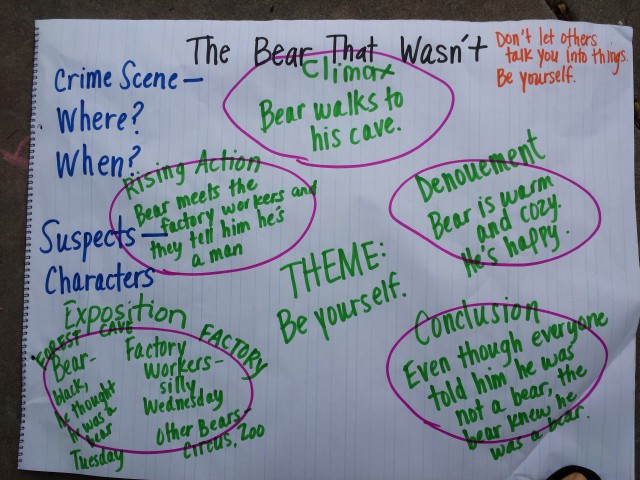 The Bear That Wasn't
Don't let others
talk you into things.
Be yourself.
Crime Scene —
Where?
When?
Suspects —
Characters
Climax
Bear walks to
his cave.
Rising Action
Bear meets the
factory workers and
they tell him he's
a man
Denouement
Bear is warm
and cozy.
He's happy.
THEME:
Be yourself.
Exposition
FOREST CAVE
FACTORY
Bear-
black,
he thought
he was a
bear
Tuesday
Factory
Workers-
silly
Wednesday
Other Bears-
Circus, Zoo
Conclusion
Even though everyone
told him he was
not a bear, the
bear knew he
was a bear.